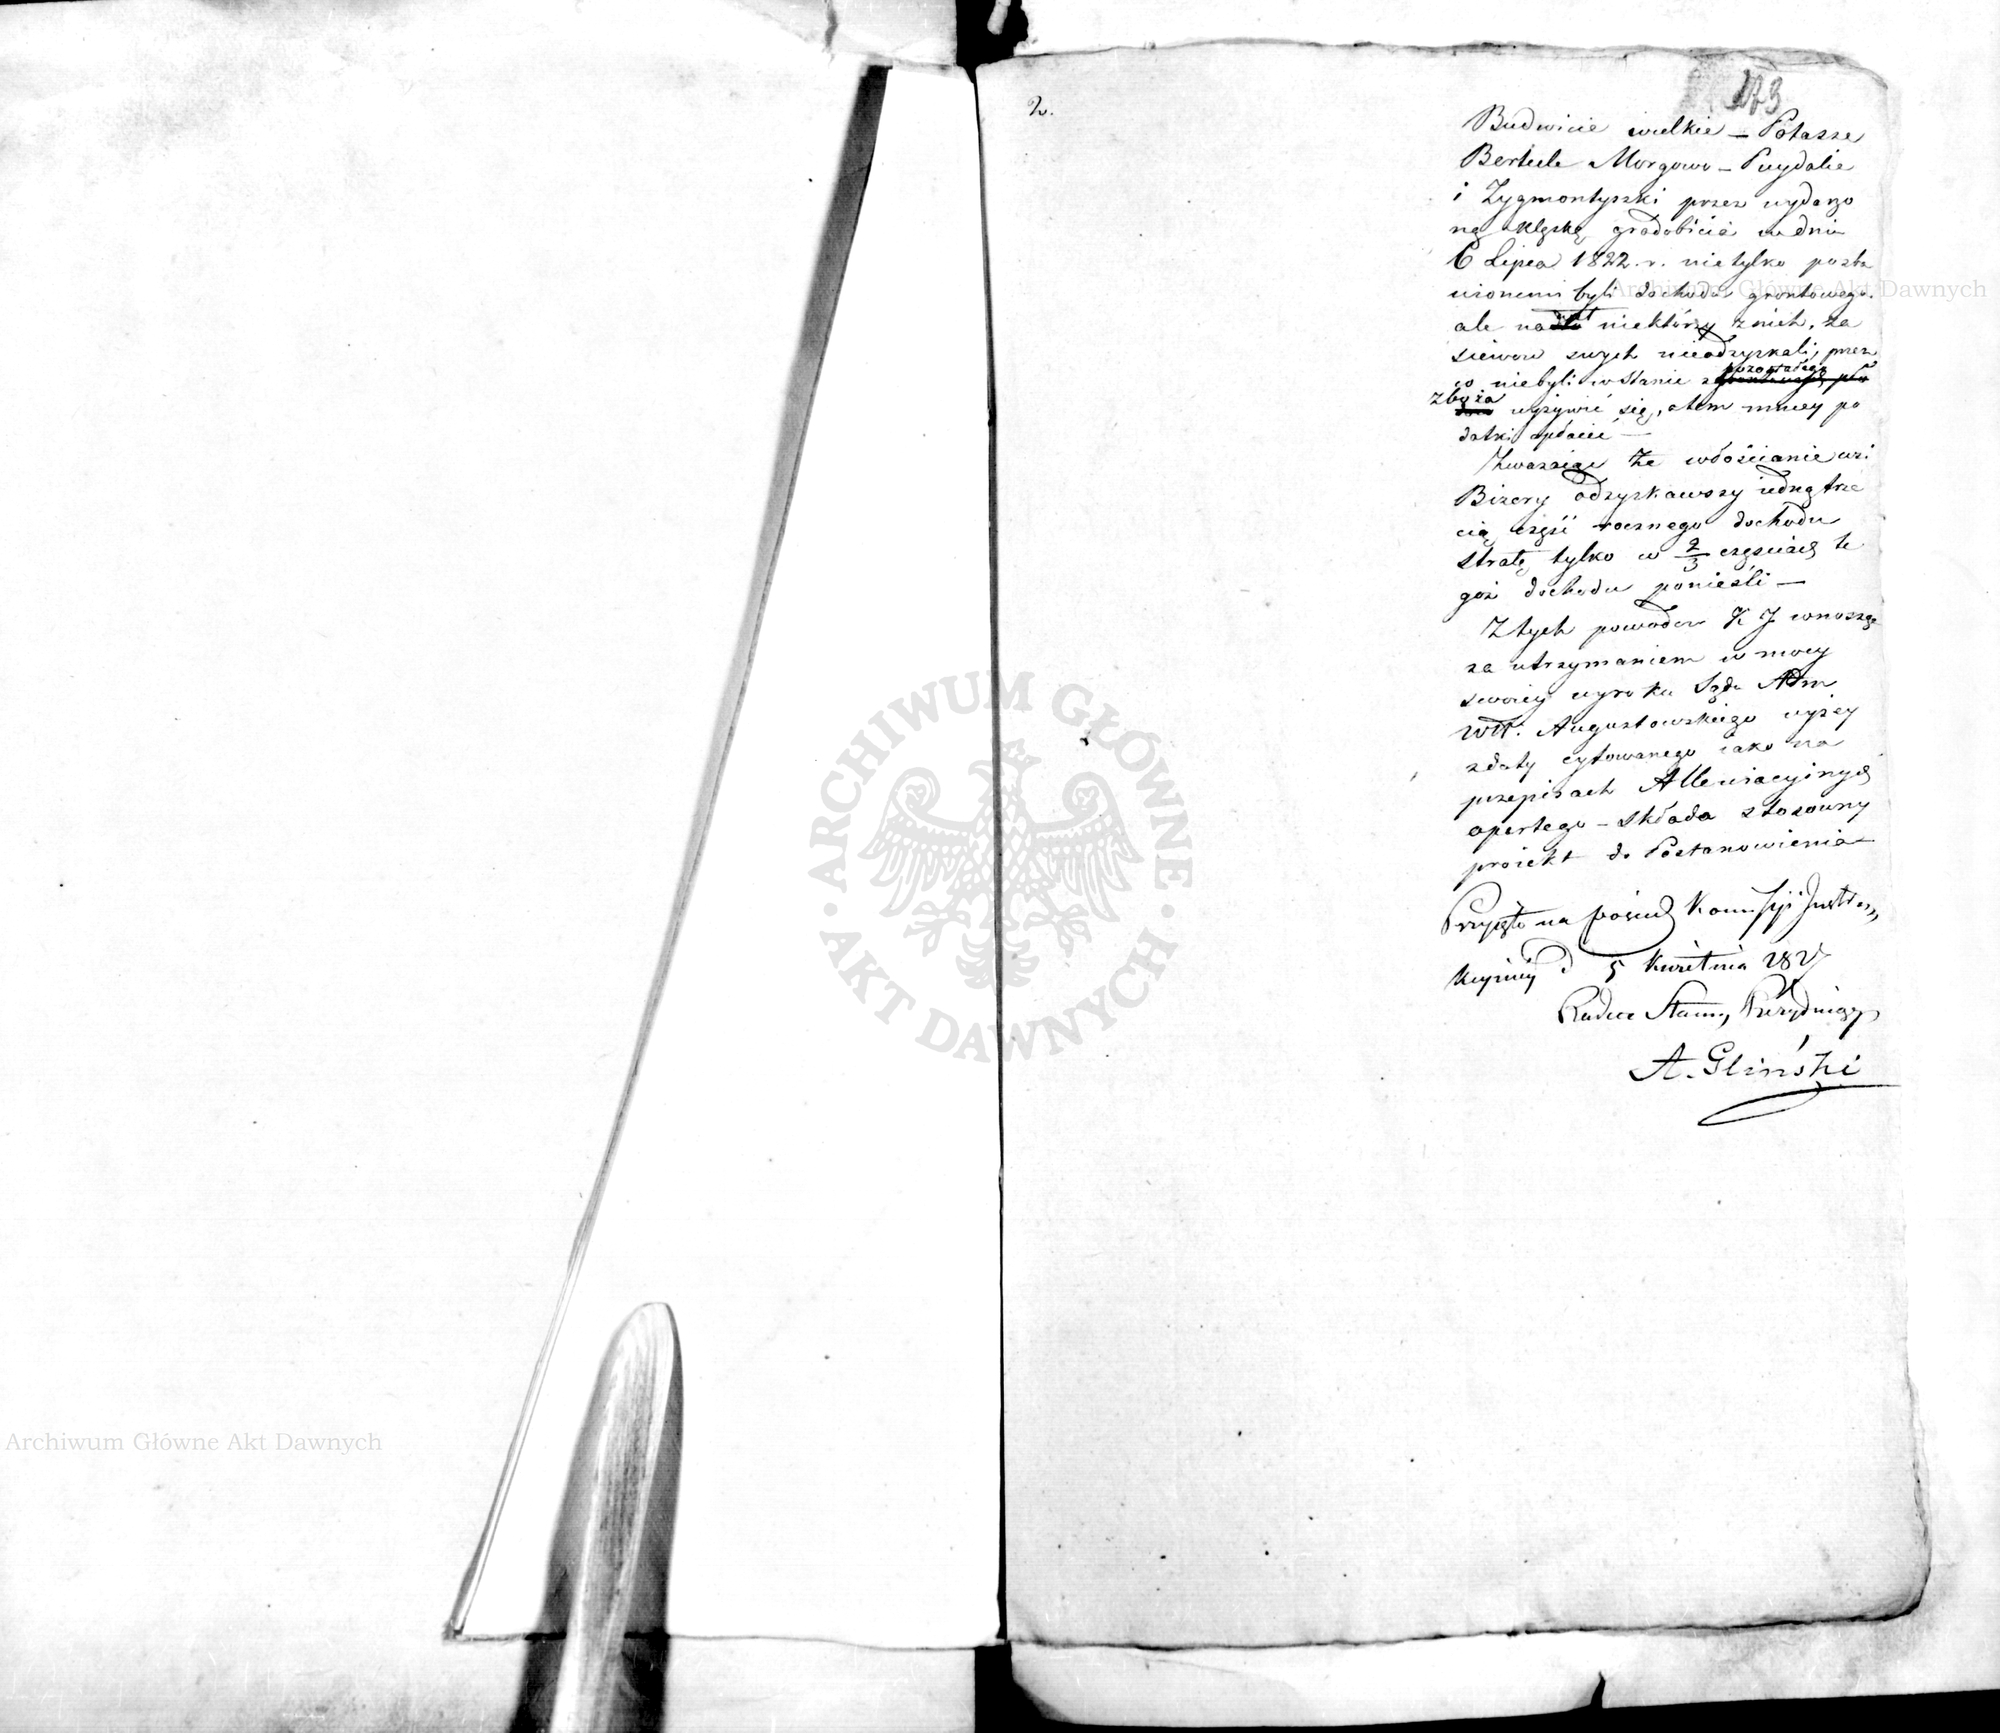 2.
173
Budwicie wielkie – Potasze
Bertele Morgowo – Puydalie
i Zygmontyszki przez wydarzo
ną klęskę gradobicia w dniu
6 Lipca 1822 r. nietylko pozba
wionemi byli dochodu grontowego.
ale nadto niektórzy znich, za
siewow swych nieodzyskali, przez
co niebyli wstanie z pozostałego
zboża wyżywić się, atem mniey po
datki opłacić –
Zważaiąc że włościanie wsi
Bizery odzyskawszy iedną trze
cią część rocznego dochodu
stratę tylko w 2/3 częściach te
goż dochodu ponieśli –
Ztych powodow K J wnosząc
za utrzymaniem w mocy
swoiey wyroku Sądu Adm
Wdt. Augustowskiego wyżey
zdaty cytowanego iako na
przepisach Allewiacyinych
opartego – składa stosowny
proiekt do Postanowienia
Przyięto na posied Komissyi Instruk
kcyiney d 5 Kwietnia 1827
Radca Stanu, Prezyduiący
A. Gliński
ARCHIWUM GŁÓWNE
AKT DAWNYCH
Archiwum Główne Akt Dawnych
Archiwum Główne Akt Dawnych